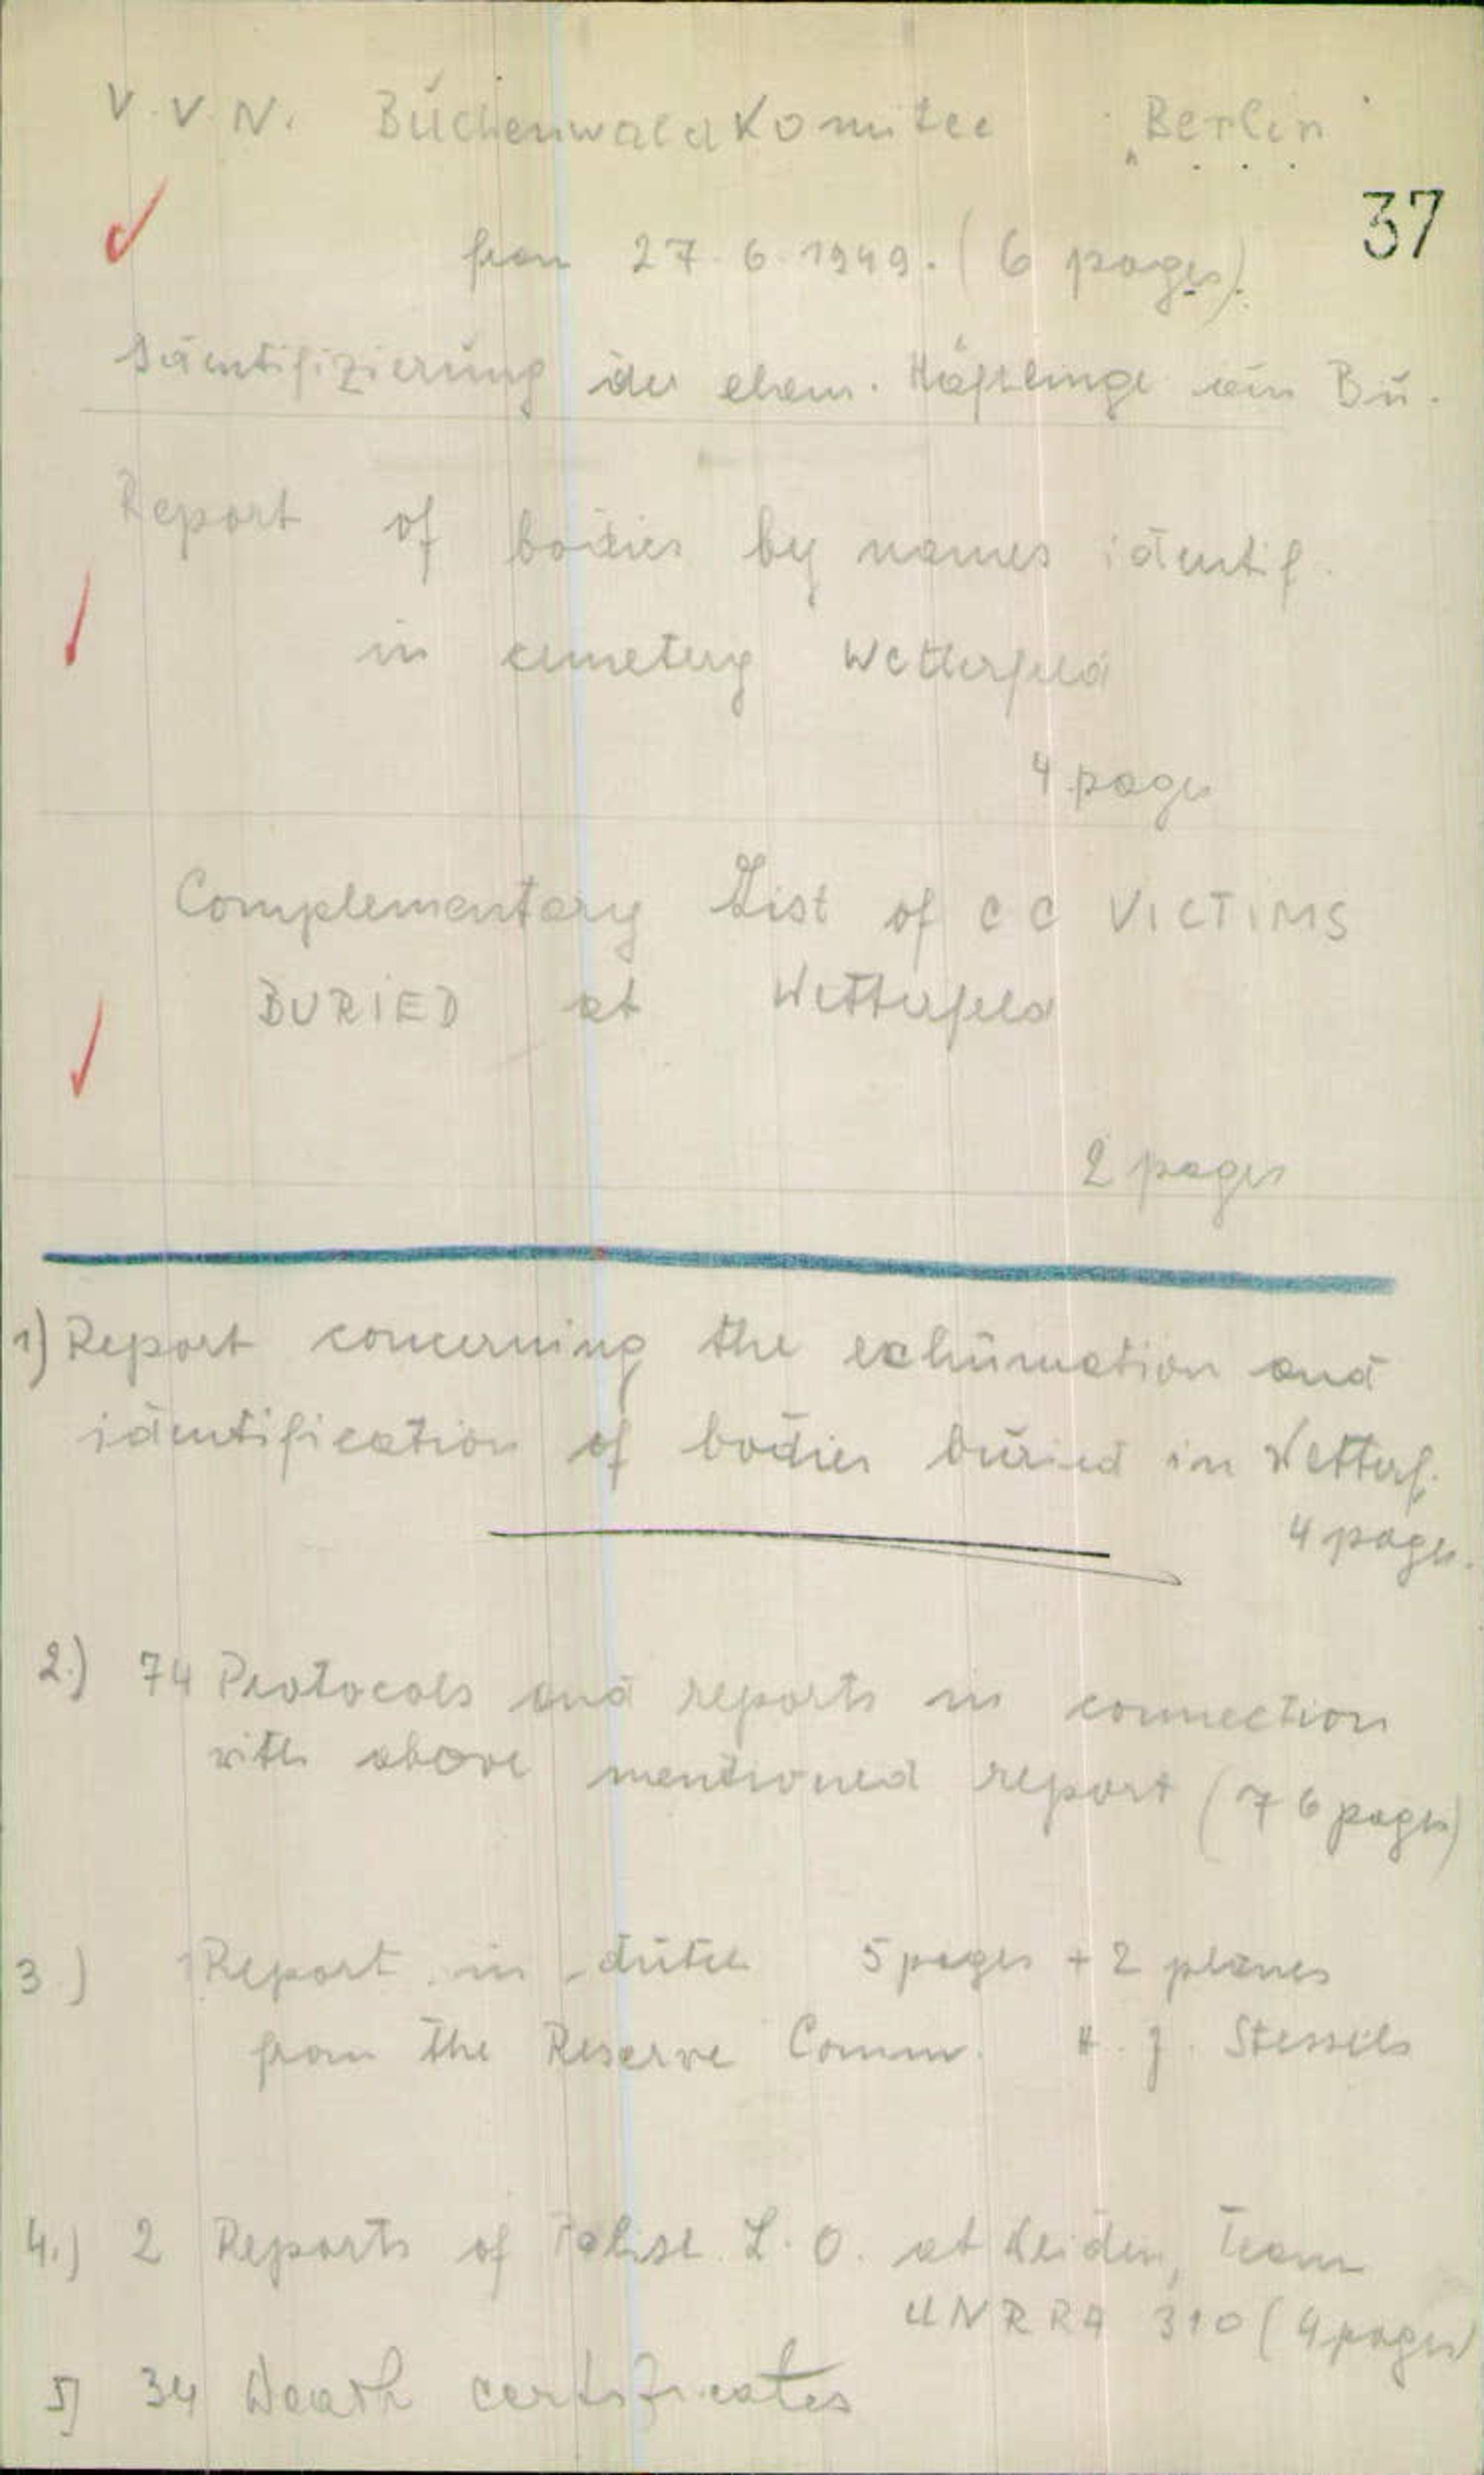 V.V.N. Buchenwaldkomitee Berlin
37
from 27 6. 1949. (6 pages).
Identifizierung der ehem. Häftlinge Bu.
Report of bodies by names identif.
in cemetery Wetterfeld
4 pages
Complementary List of CC VICTIMS
BURIED at Wetterfeld
2 pages
1) Report concerning the exhumation and
identification of bodies buried in Wetterf.
4 pages.
2.) 74 Protocols and reports in connection
with above mentioned report (76 pages)
3.) 1 Report in dutch 5 pages + 2 planes
from the Reserve Comm. H. J. Stessels
4.) 2 Reports of L. O. at Weiden, Team
UNRRA 310 (4 pages)
5) 34 Death certificates